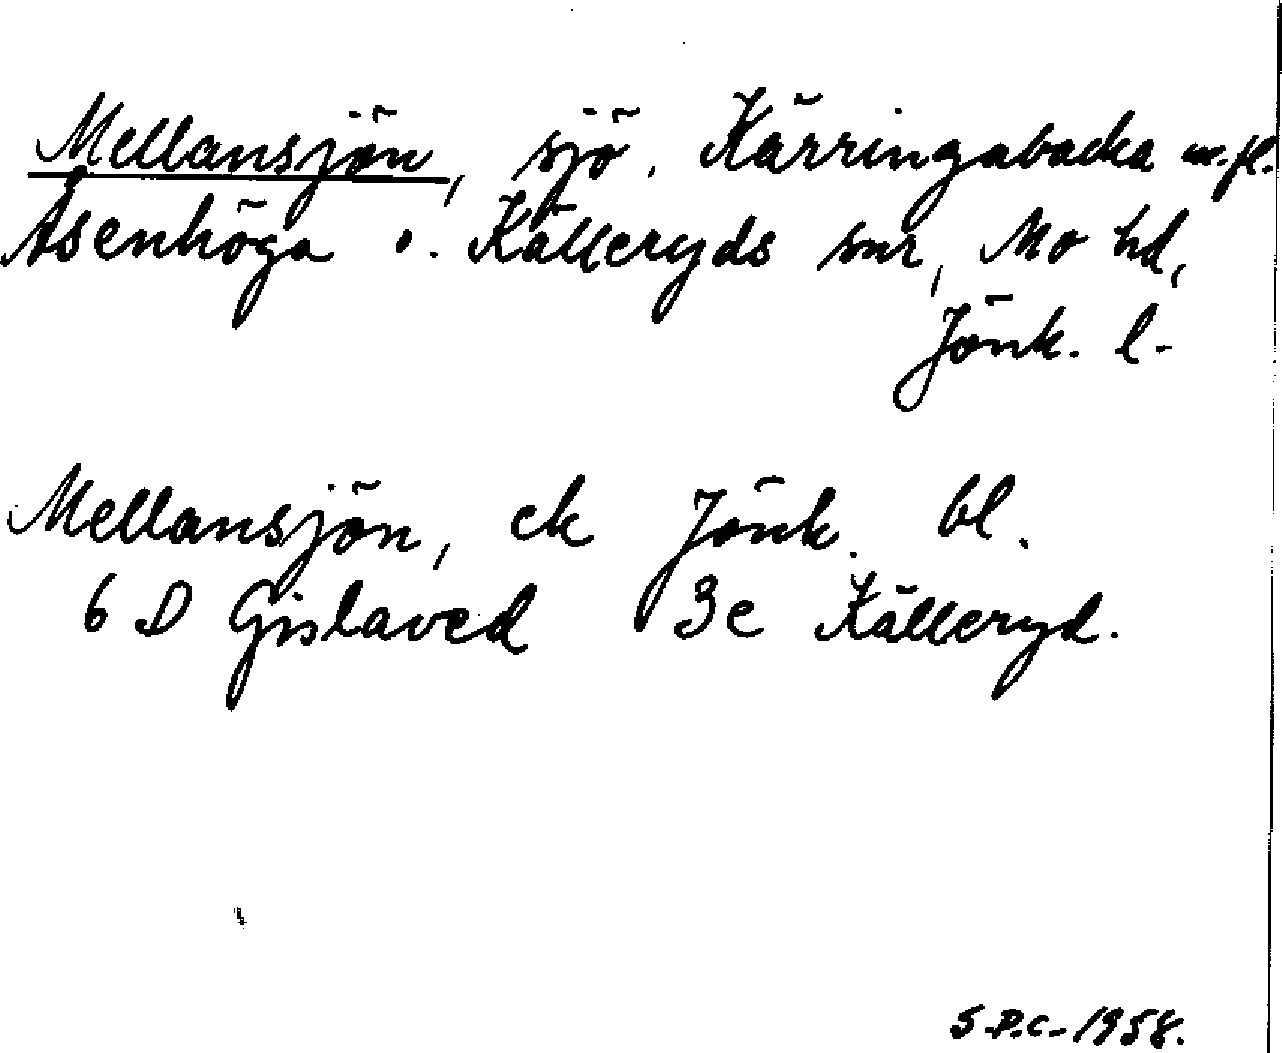 Mellansjön, sjö. Kärringabacka m.fl.
Åsenhöga o. Källeryds snr, Mo hd,
Jönk. l.
Mellansjön, ek Jönk. bl.
6 D Gislaved 3e Källeryd.
S.P.C. 1958.